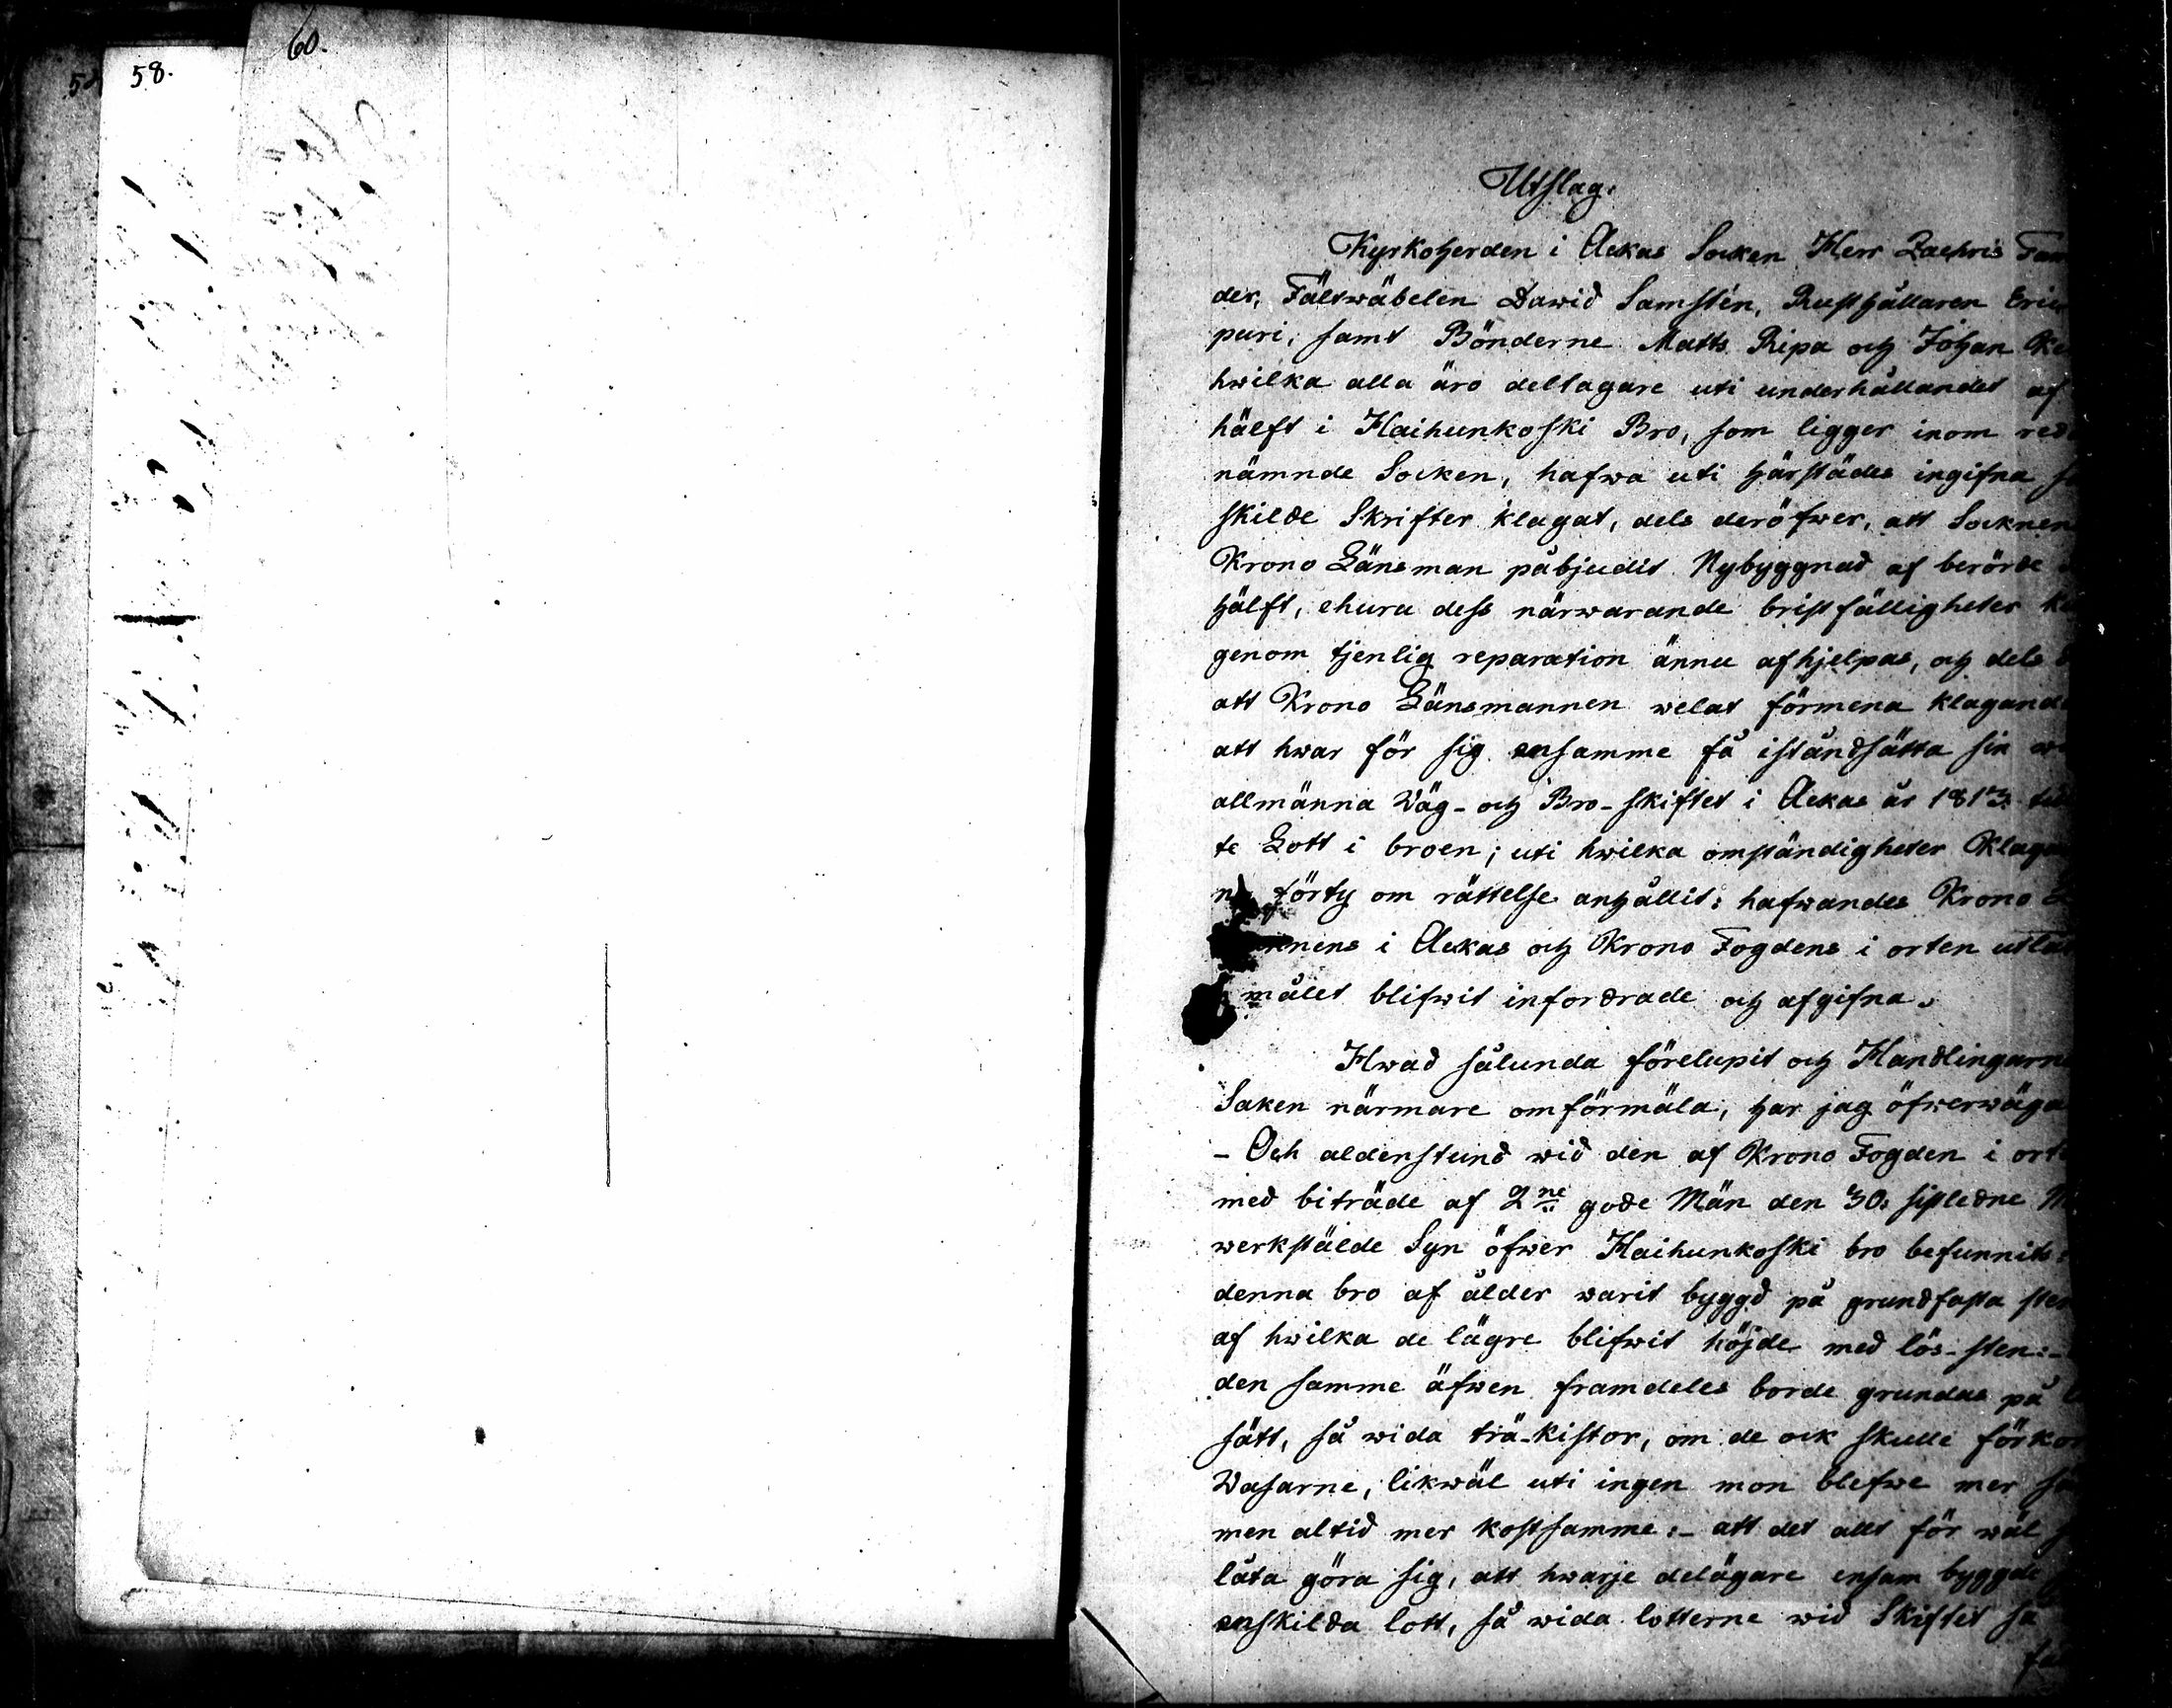 60.
58.
Utslag.
Kyrkoherden i Ackas Socken Herr Zachris
der, Fältwäbelen Dawid Samstén, Rusthållaren
puri, samt Bönderne Matts Ripa och Johan
hwilka alla äro deltagare uti underhållandet af
hälft i Haihunkoski Bro, som ligger inom
nämnde Socken, hafwa uti härstädes ingifna
skilde Skrifter klagat, dels deröfwer, att Socknen
Krono Länsman påbjudit Nybyggnad af berörde
hälft, ehuru dess närwarande bristfälligheter
genom tjenlig reparation ännu afhjelpas, och dels
att Krono Länsmannen welat förmena klagand
att hwar för sig ensamme få iståndsätta sin
allmänna Wäg- och Bro-skiftet i Ackas år 1813
te Lott i broen; uti hwilka omständigheter
förty om rättelse anhållit; hafwandes Krono
nens i Ackas och Krono Fogdens i orten
målet blifwit infordrade och afgifna.
Hwad sålunda förelupit och Handlingarn
Saken närmare omförmäla, har jag öfwerwäga
- Och aldenstund wid den af Krono Fogden i
med biträde af 2ne gode Män den 30. sistledne
werkstälde Syn öfwer Haihunkoski bro befunnits:
denna bro af ålder warit byggd på grundfasta
af hwilka de lägre blifwit höjde med lös-sten:-
den samme äfwen framdeles borde grundas på
sätt, så wida trä-kistor, om de ock skulle
Wasarne, likwäl uti ingen mon blefwe mer
men altid mer kostsamme:- att det allt för wäl
låta göra sig, att hwarje delägare ensam byggde
enskilda lott, så wida lotterne wid Skiftet så